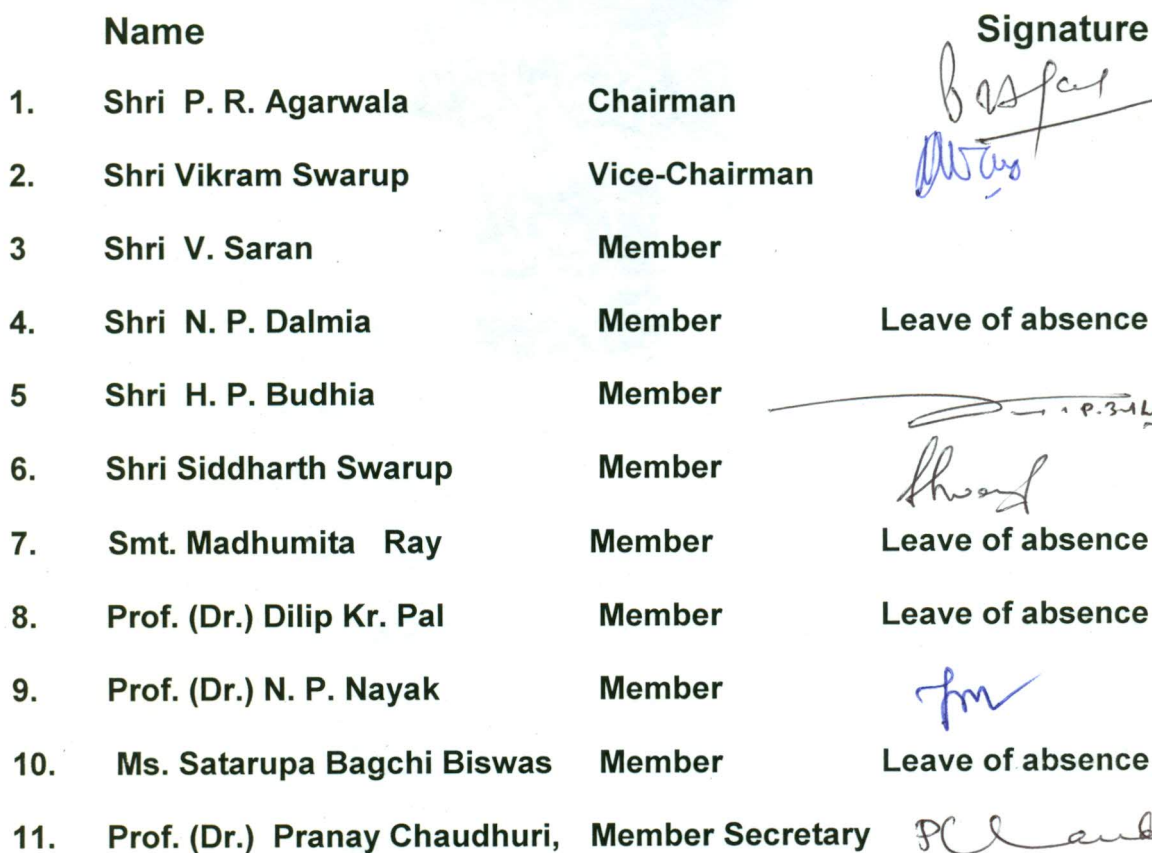 Name Signature
1. Shri P. R. Agarwala Chairman
2. Shri Vikram Swarup Vice-Chairman
3 Shri V. Saran Member
4. Shri N. P. Dalmia Member Leave of absence
5 Shri H. P. Budhia Member
6. Shri Siddharth Swarup Member
7. Smt. Madhumita Ray Member Leave of absence
8. Prof. (Dr.) Dilip Kr. Pal Member Leave of absence
9. Prof. (Dr.) N. P. Nayak Member
10. Ms. Satarupa Bagchi Biswas Member Leave of absence
11. Prof. (Dr.) Pranay Chaudhuri, Member Secretary